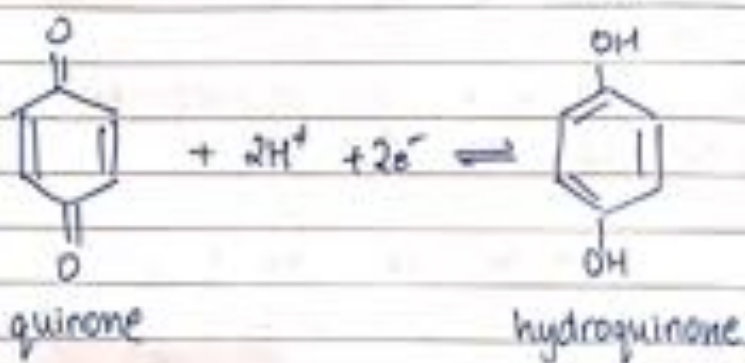 O OH
+ 2H⁺ + 2e⁻ ⇌
O OH
quinone hydroquinone